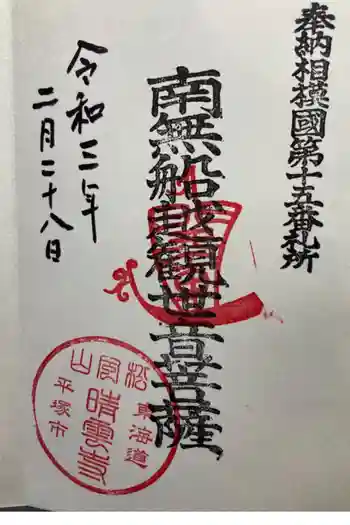 奉納相模國第十五番札所
南無船越観世音菩薩
令和三年
二月二十八日
東海道
松岩山
晴雲寺
平塚市